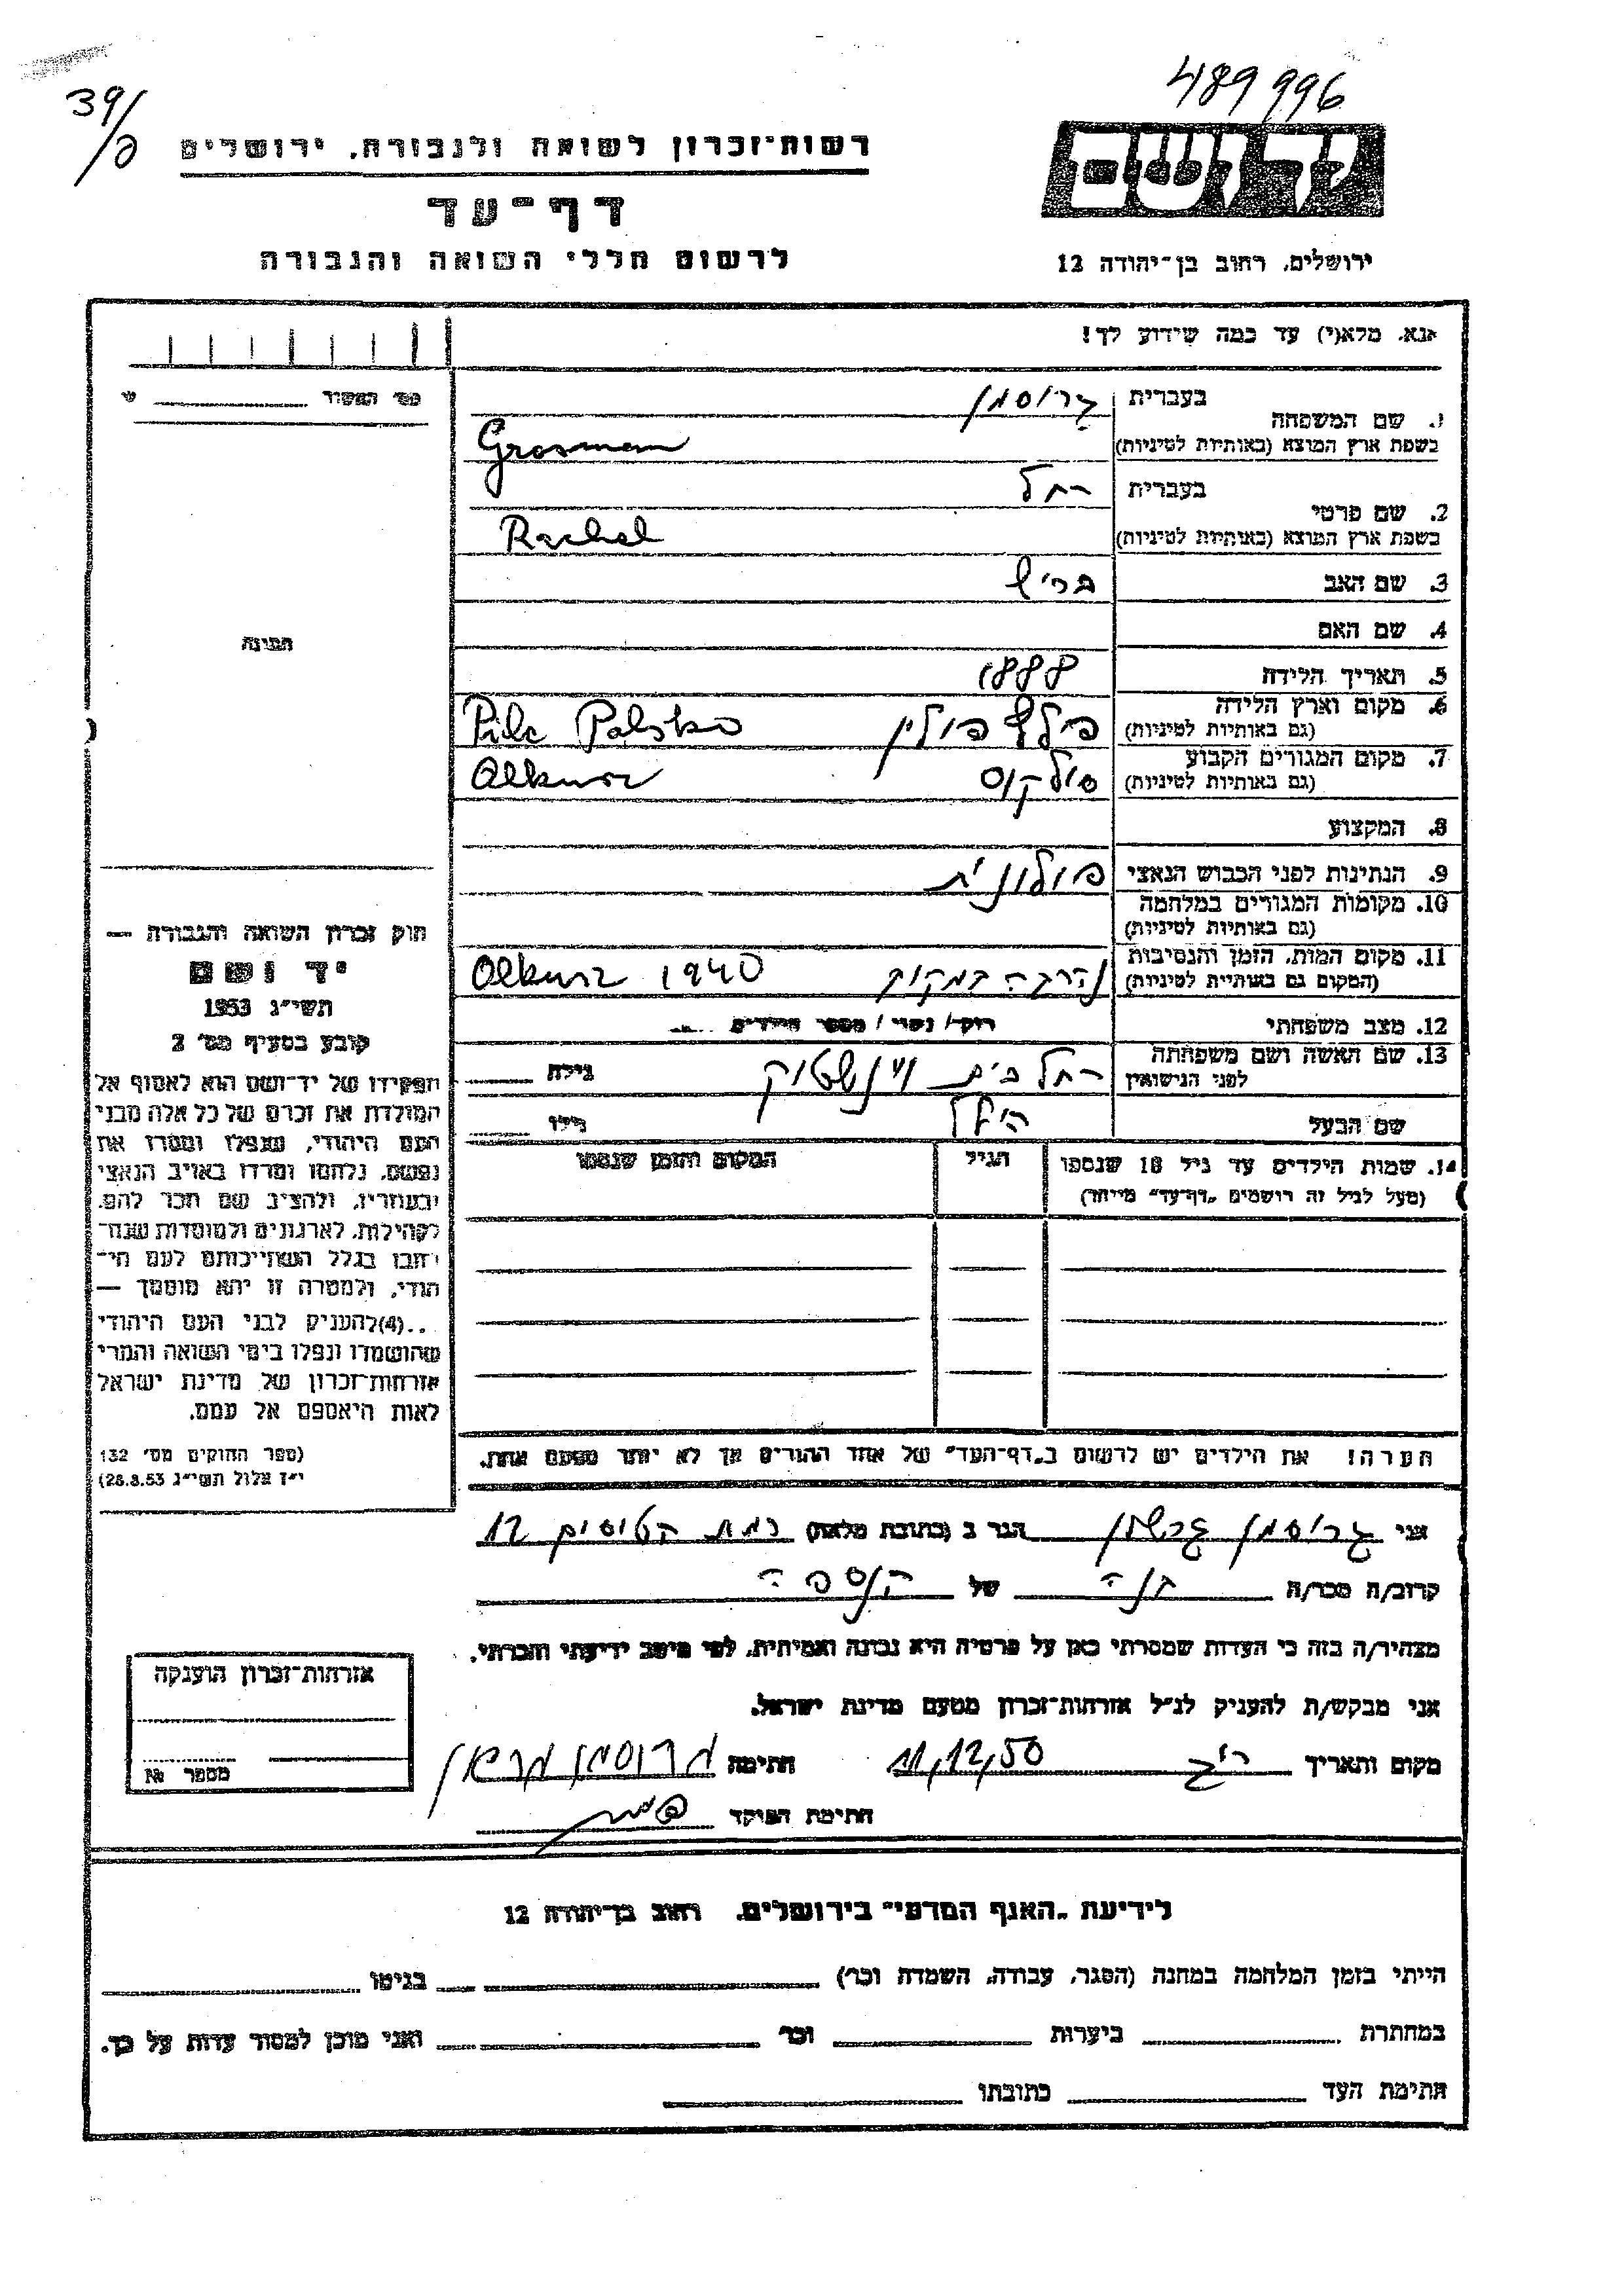 489996
39/פ
רשות־זכרון לשואה ולגבורה, ירושלים
דף־עד
לרשום חללי השואה והגבורה
ירושלים, רחוב בן־יהודה 12
אנא, מלא(י) עד כמה שידוע לך!
1. שם המשפחה
בעברית גרוסמן
בשפת ארץ המוצא (באותיות לטיניות) Grosman
2. שם פרטי
בעברית רחל
בשפת ארץ המוצא (באותיות לטיניות) Rachel
3. שם האב
4. שם האם
5. תאריך הלידה 1888
6. מקום וארץ הלידה
(גם באותיות לטיניות) פולין Polska
7. מקום המגורים הקבוע
(גם באותיות לטיניות) Olkusz
8. המקצוע
9. הנתינות לפני הכבוש הנאצי פולונית
10. מקומות המגורים במלחמה
(גם באותיות לטיניות)
11. מקום המות, הזמן והנסיבות
(המקום גם באותיית לטיניות) Olkusz 1940
12. מצב משפחתי רוק / נשוי / מספר הילדים
13. שם האשה ושם משפחתה
לפני הנישואין רחל בית גילה
שם הבעל גילו
14. שמות הילדים עד גיל 18 שנספו הגיל המקום והזמן שנספו
(מעל לגיל זה רושמים „דף־עד" מיוחד)
הערה! את הילדים יש לרשום ב„דף־העד" של אחד ההורים אך לא יותר מפעם אחת.
תמונה
חוק זכרון השואה והגבורה —
יד ושם
תשי״ג 1953
קובע בסעיף מס׳ 2
תפקידו של יד־ושם הוא לאסוף אל
המולדת את זכרם של כל אלה מבני
העם היהודי, שנפלו ומסרו את
נפשם, נלחמו ומרדו באויב הנאצי
ובעוזריו, ולהציב שם וזכר להם,
לקהילות, לארגונים ולמוסדות שנח־
רבו בגלל השתייכותם לעם הי־
הודי, ולמטרה זו יהא מוסמך —
...(4)להעניק לבני העם היהודי
שהושמדו ונפלו בימי השואה והמרי
אזרחות־זכרון של מדינת ישראל
לאות היאספם אל עמם.
(ספר החוקים מס׳ 132
י״ז אלול תשי״ג 28.8.53)
אני גרוסמן הגר ב (כתובת מלאה) רמת הטייסים 12
קרוב/ה מכר/ה של הנספה
מצהיר/ה בזה כי העדות שמסרתי כאן על פרטיה היא נכונה ואמיתית, לפי מיטב ידיעתי והכרתי.
אני מבקש/ת להעניק לנ״ל אזרחות־זכרון מטעם מדינת ישראל.
מקום ותאריך חתימה גרוסמן
חתימת הפוקד
אזרחות־זכרון הוענקה
מספר №
לידיעת „האגף המדעי" בירושלים, רחוב בן־יהודה 12
הייתי בזמן המלחמה במחנה (הסגר, עבודה, השמדה וכו׳) בגיטו
במחתרת ביערות וכו׳ ואני מוכן למסור עדות על כך.
חתימת העד כתובתו